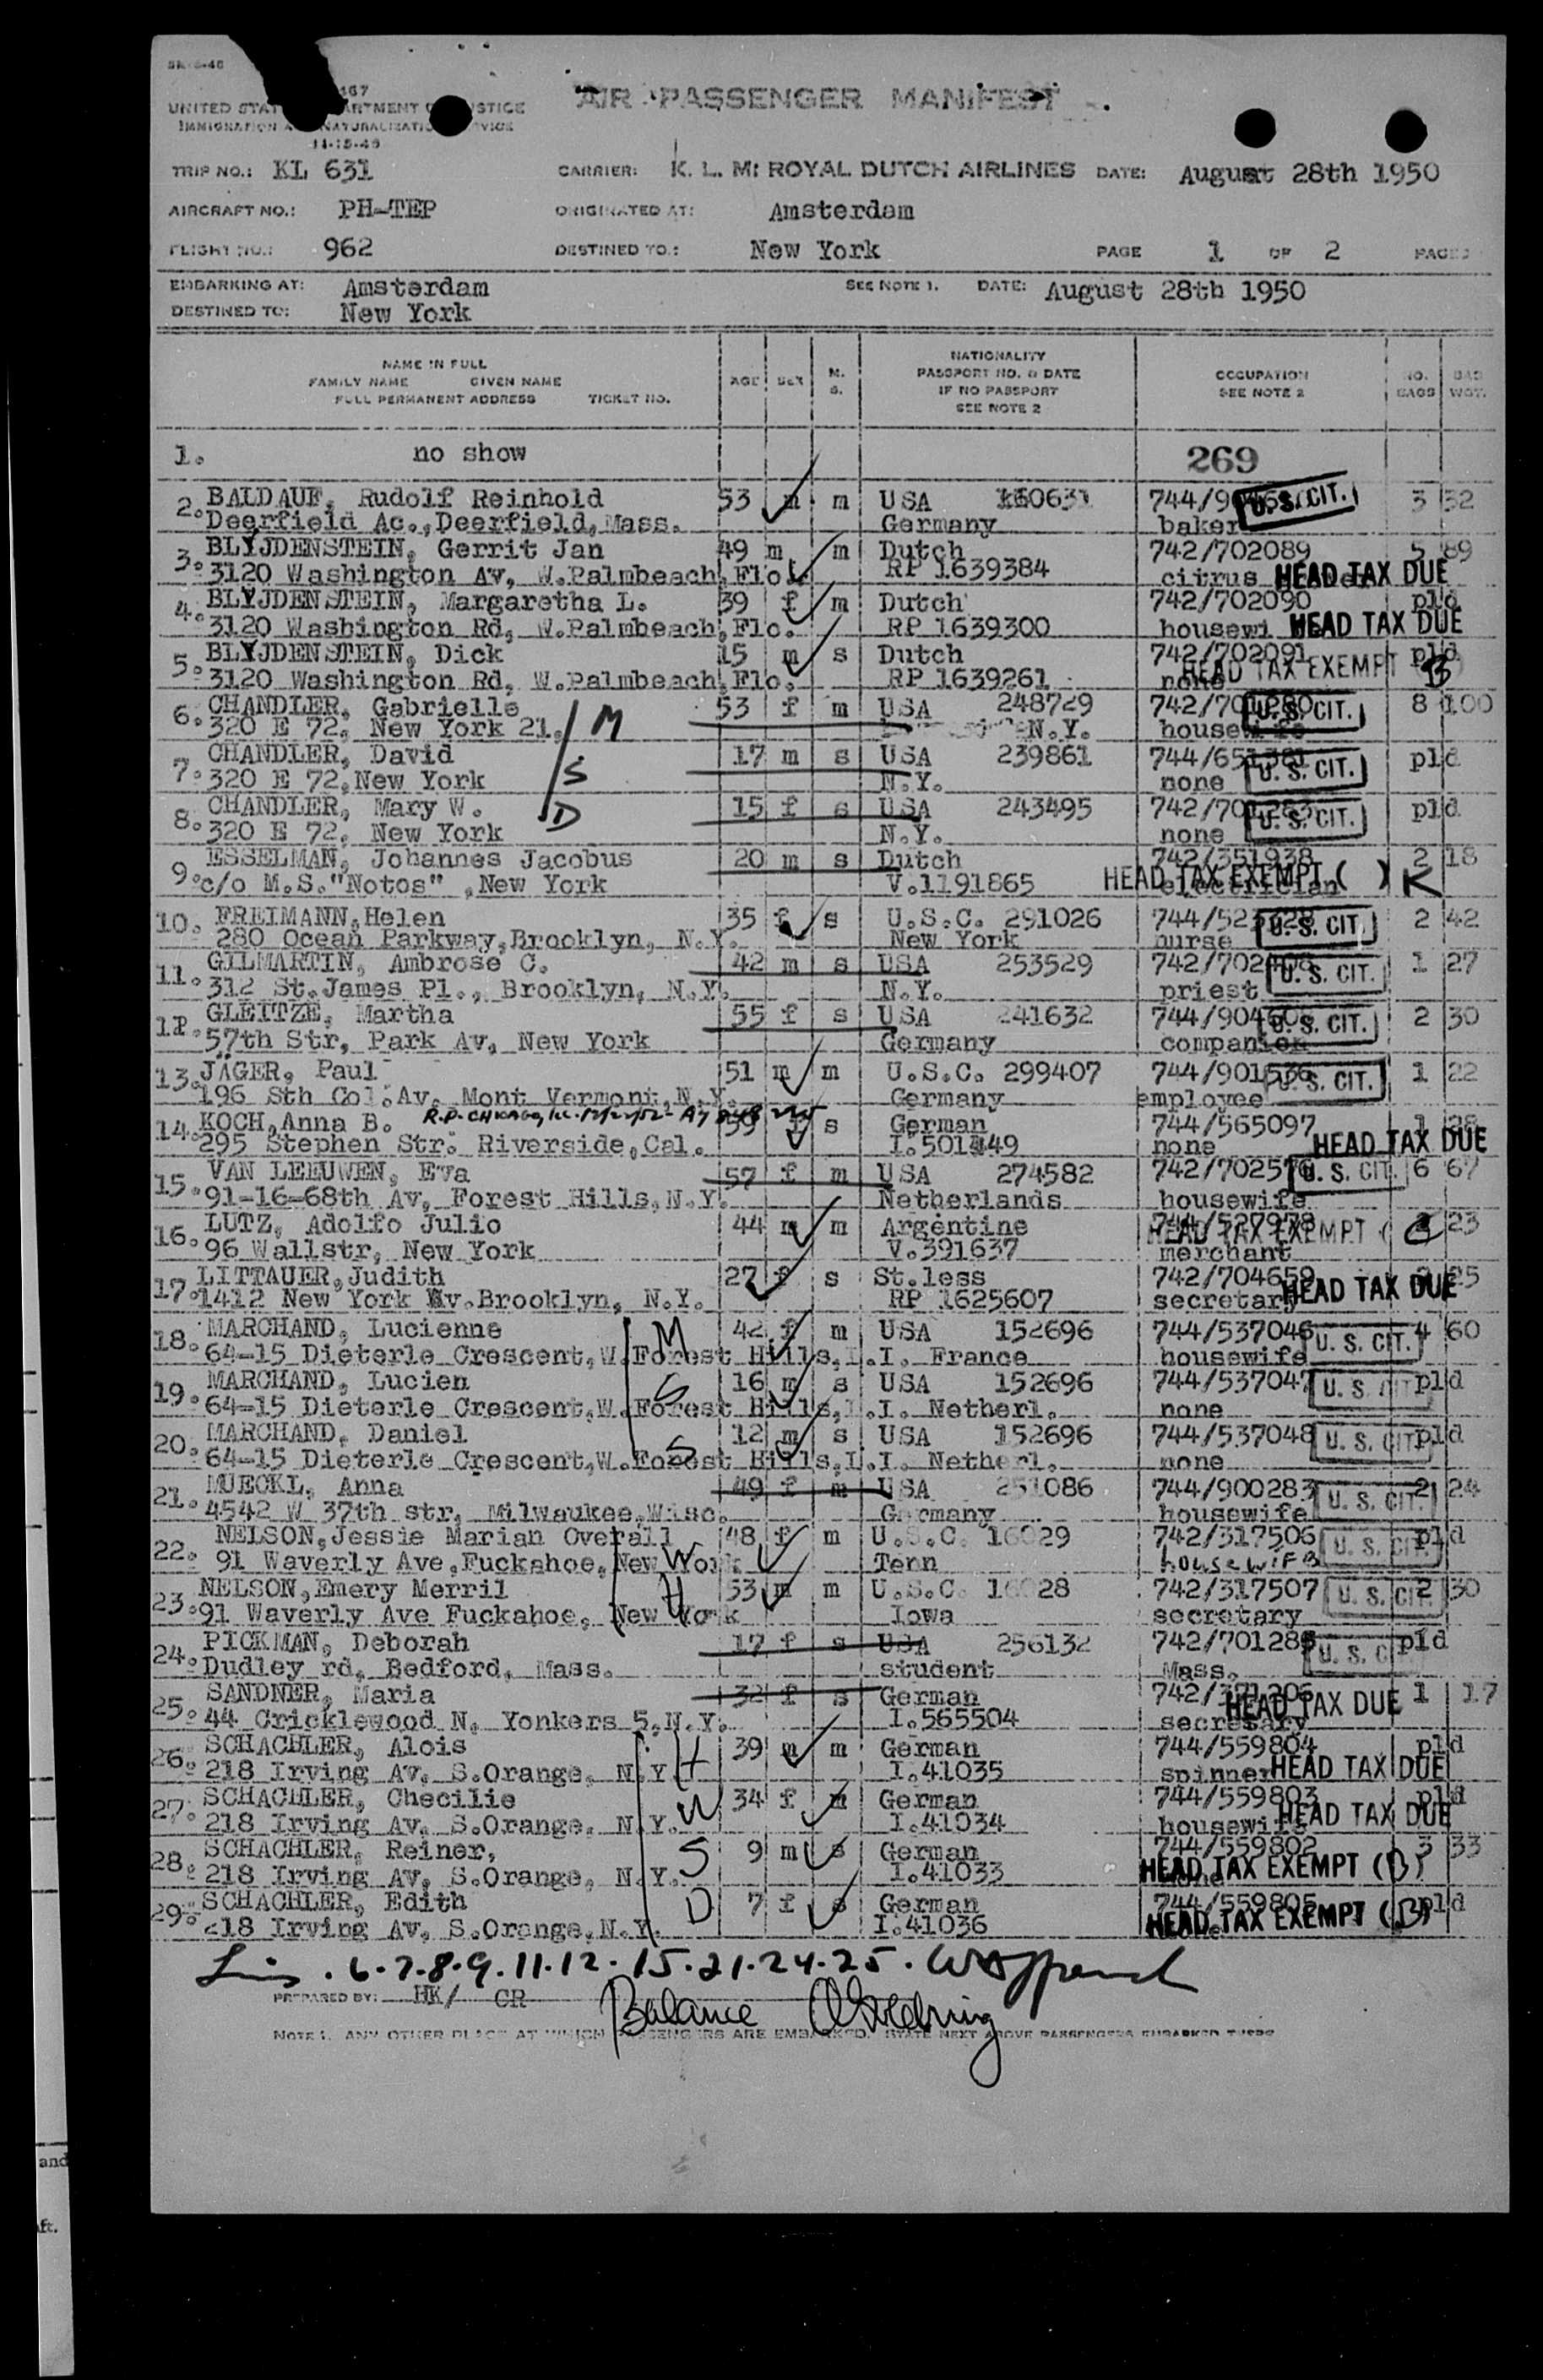 AIR PASSENGER MANIFEST
UNITED STAT ARTMENT STICE
IMMIGRATION NATURALIZATI VICE
11-15-49
TRIP NO.: KL 631 CARRIER: K. L. M: ROYAL DUTCH AIRLINES DATE: August 28th 1950
AIRCRAFT NO.: PH-TEP ORIGINATED AT: Amsterdam
FLIGHT NO.: 962 DESTINED TO.: New York PAGE 1 OF 2 PAGES
EMBARKING AT: Amsterdam SEE NOTE 1. DATE: August 28th 1950
DESTINED TO: New York
NAME IN FULL
FAMILY NAME GIVEN NAME
FULL PERMANENT ADDRESS TICKET NO.
AGE SEX M. S.
NATIONALITY
PASSPORT NO. & DATE
IF NO PASSPORT
SEE NOTE 2
OCCUPATION
SEE NOTE 2
NO. BAGS
BAG WGT.
1. no show 269
2. BALDAUF, Rudolf Reinhold 53 m m USA 160631 U.S. CIT. 3 32
Deerfield Ac., Deerfield, Mass. Germany baker
3. BLYJDENSTEIN, Gerrit Jan 49 m m Dutch 742/702089 5 89
3120 Washington Av, W.Palmbeach, Flo. RP 1639384 citrus HEAD TAX DUE
4. BLYJDENSTEIN, Margaretha L. 39 f m Dutch 742/702090 pld
3120 Washington Rd, W.Palmbeach, Flo. RP 1639300 housewi HEAD TAX DUE
5. BLYJDENSTEIN, Dick 15 m s Dutch 742/702091 pld
3120 Washington Rd, W.Palmbeach, Flo. RP 1639261 none HEAD TAX EXEMPT B
6. CHANDLER, Gabrielle 53 f m USA 248729 U.S. CIT. 8 100
320 E 72, New York 21. M N.Y. housewife
7. CHANDLER, David 17 m s USA 239861 744/651381 U. S. CIT. pld
320 E 72, New York S N.Y. none
8. CHANDLER, Mary W. 15 f s USA 243495 742/701283 U. S. CIT. pld
320 E 72, New York D N.Y. none
9. ESSELMAN, Johannes Jacobus 20 m s Dutch 742/351938 2 18
c/o M.S."Notos" ,New York V.1191865 electrician HEAD TAX EXEMPT ( ) K
10. FREIMANN, Helen 35 f s U.S.C. 291026 U. S. CIT. 2 42
280 Ocean Parkway, Brooklyn, N.Y. New York nurse
11. GILMARTIN, Ambrose C. 42 m s USA 253529 U. S. CIT. 1 27
312 St.James Pl., Brooklyn, N.Y. N.Y. priest
12. GLEITZE, Martha 55 f s USA 241632 U. S. CIT. 2 30
57th Str, Park Av, New York Germany companion
13. JÄGER, Paul 51 m m U.S.C. 299407 744/901536 U. S. CIT. 1 22
196 Sth Col. Av. Mont Vermont, N.Y. Germany employee
14. KOCH, Anna B. f s German 744/565097
295 Stephen Str. Riverside, Cal. none HEAD TAX DUE
15. VAN LEEUWEN, Eva 57 f m USA 274582 U. S. CIT. 6 67
91-16-68th Av, Forest Hills, N.Y. Netherlands housewife
16. LUTZ, Adolfo Julio 44 m m Argentine 744/527978 23
96 Wallstr, New York V.391637 merchant HEAD TAX EXEMPT
17. LITTAUER, Judith 27 f s St.less 742/704659 25
1412 New York Av.Brooklyn, N.Y. RP 1625607 secretary HEAD TAX DUE
18. MARCHAND, Lucienne M 42 f m USA 152696 744/537046 U. S. CIT. 4 60
64-15 Dieterle Crescent, W.Forest Hills, L.I. France housewife
19. MARCHAND, Lucien S 16 m s USA 152696 744/537047 U. S. CIT pld
64-15 Dieterle Crescent, W.Forest Hills, L.I. Netherl. none
20. MARCHAND, Daniel S 12 m s USA 152696 744/537048 U. S. CIT pld
64-15 Dieterle Crescent, W.Forest Hills, L.I. Netherl. none
21. MUECKL, Anna 49 f m USA 251086 744/900283 U. S. CIT. 2 24
4542 W 37th str, Milwaukee, Wisc. Germany housewife
22. NELSON, Jessie Marian Overall W 48 f m U.S.C. 16029 742/317506 U. S. CIT pld
91 Waverly Ave, Fuckahoe, New York Tenn housewife
23. NELSON, Emery Merril H 53 m m U.S.C. 16028 742/317507 U. S. CIT 2 30
91 Waverly Ave Fuckahoe, New York Iowa secretary
24. PICKMAN, Deborah 17 f s USA 256132 742/701285 U. S. C pld
Dudley rd, Bedford, Mass. student Mass.
25. SANDNER, Maria 32 f s German 1 17
44 Cricklewood N. Yonkers 5, N.Y. I.565504 secretary HEAD TAX DUE
26. SCHACHLER, Alois H 39 m m German 744/559804 pld
218 Irving Av. S.Orange, N.Y. I.41035 spinner HEAD TAX DUE
27. SCHACHLER, Checilie W 34 f m German 744/559803 pld
218 Irving Av. S.Orange, N.Y. I.41034 housewife HEAD TAX DUE
28. SCHACHLER, Reiner, S 9 m s German 744/559802 3 33
218 Irving Av. S.Orange, N.Y. I.41033 HEAD TAX EXEMPT (B)
29. SCHACHLER, Edith D 7 f s German 744/559805 pld
218 Irving Av. S.Orange, N.Y. I.41036 HEAD TAX EXEMPT (B)
6-7-8-9-11-12-15-21-24-25.
PREPARED BY: HK/ CR
Balance
NOTE 1. ANY OTHER PLACE AT WHICH PASSENGERS ARE EMBARKED. STATE NEXT ABOVE PASSENGERS EMBARKED THERE
and
ft.